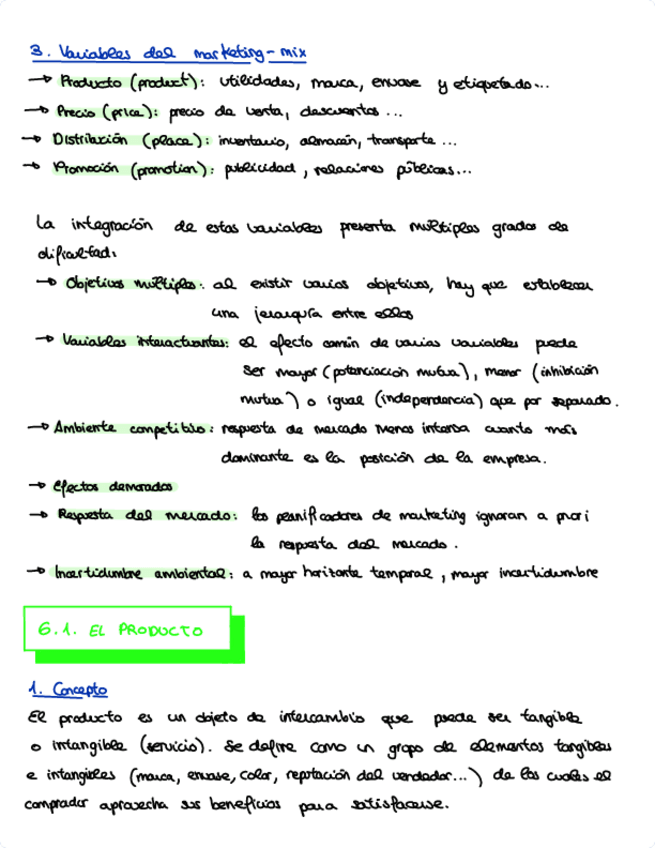 3. Variables del marketing-mix
→ Producto (product): utilidades, marca, envase y etiquetado...
→ Precio (price): precio de venta, descuentos ...
→ Distribución (place): inventario, almacén, transporte ...
→ Promoción (promotion): publicidad, relaciones públicas...
La integración de estas variables presenta múltiples grados de
dificultad:
→ Objetivos múltiples: al existir varios objetivos, hay que establecer
una jerarquía entre ellos
→ Variables interactuantes: el efecto común de varias variables puede
ser mayor (potenciación mutua), menor (inhibición
mutua) o igual (independencia) que por separado.
→ Ambiente competitivo: respuesta de mercado menos intensa cuanto más
dominante es la posición de la empresa.
→ Efectos demorados
→ Respuesta del mercado: los planificadores de marketing ignoran a priori
la respuesta del mercado.
→ Incertidumbre ambiental: a mayor horizonte temporal, mayor incertidumbre
6.1. EL PRODUCTO
1. Concepto
El producto es un objeto de intercambio que puede ser tangible
o intangible (servicio). Se define como un grupo de elementos tangibles
e intangibles (marca, envase, color, reputación del vendedor...) de los cuales el
comprador aprovecha sus beneficios para satisfacerse.